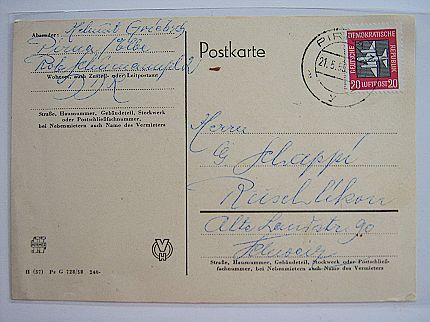 Absender: Helmut
Pirna /Elbe
Wohnort, auch Zustell- oder Leitpostamt
Straße, Hausnummer, Gebäudeteil, Stockwerk
oder Postschließfachnummer,
bei Nebenmietern auch Name des Vermieters
H (57) Ps G 728/58 240-
VMH
Postkarte
PIR
21.5.5
DEUTSCHE DEMOKRATISCHE REPUBLIK
20 LUFTPOST 20
Herrn
G Schappi
Rüschlikon
Alte Landstr 90
Schweiz
Straße, Hausnummer, Gebäudeteil, Stockwerk oder Postschließ-
fachnummer, bei Nebenmietern auch Name des Vermieters